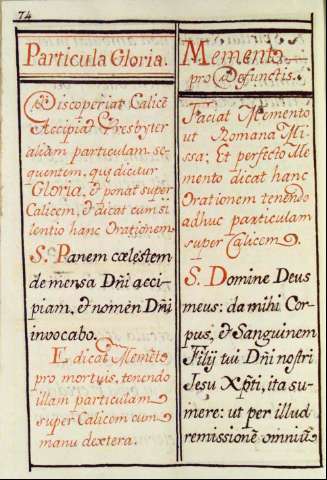 74
Particula Gloria.
Discoperiat Calicē
Accipiat Presbyter
aliam particulam se-
quentem, qui dicitur
Gloria, & ponat super
Calicem, & dicat cum si
lentio hanc Orationem
S. Panem cælestem
de mensa Dñi acci-
piam, & nomen Dñi
invocabo.
E dicat Memēto
pro mortuis, tenendo
illam particulam
super Calicem cum
manu dextera.
Memento
pro Defunctis.
Faciat Memento
ut Romana Mi-
ssa; Et perfecto Me
mento dicat hanc
Orationem tenendo
adhuc particulam
super Calicem
S. Domine Deus
meus: da mihi Cor-
pus, & Sanguinem
Filij tui Dñi nostri
Jesu Xpti, ita su-
mere: ut per illud
remissionē omniū